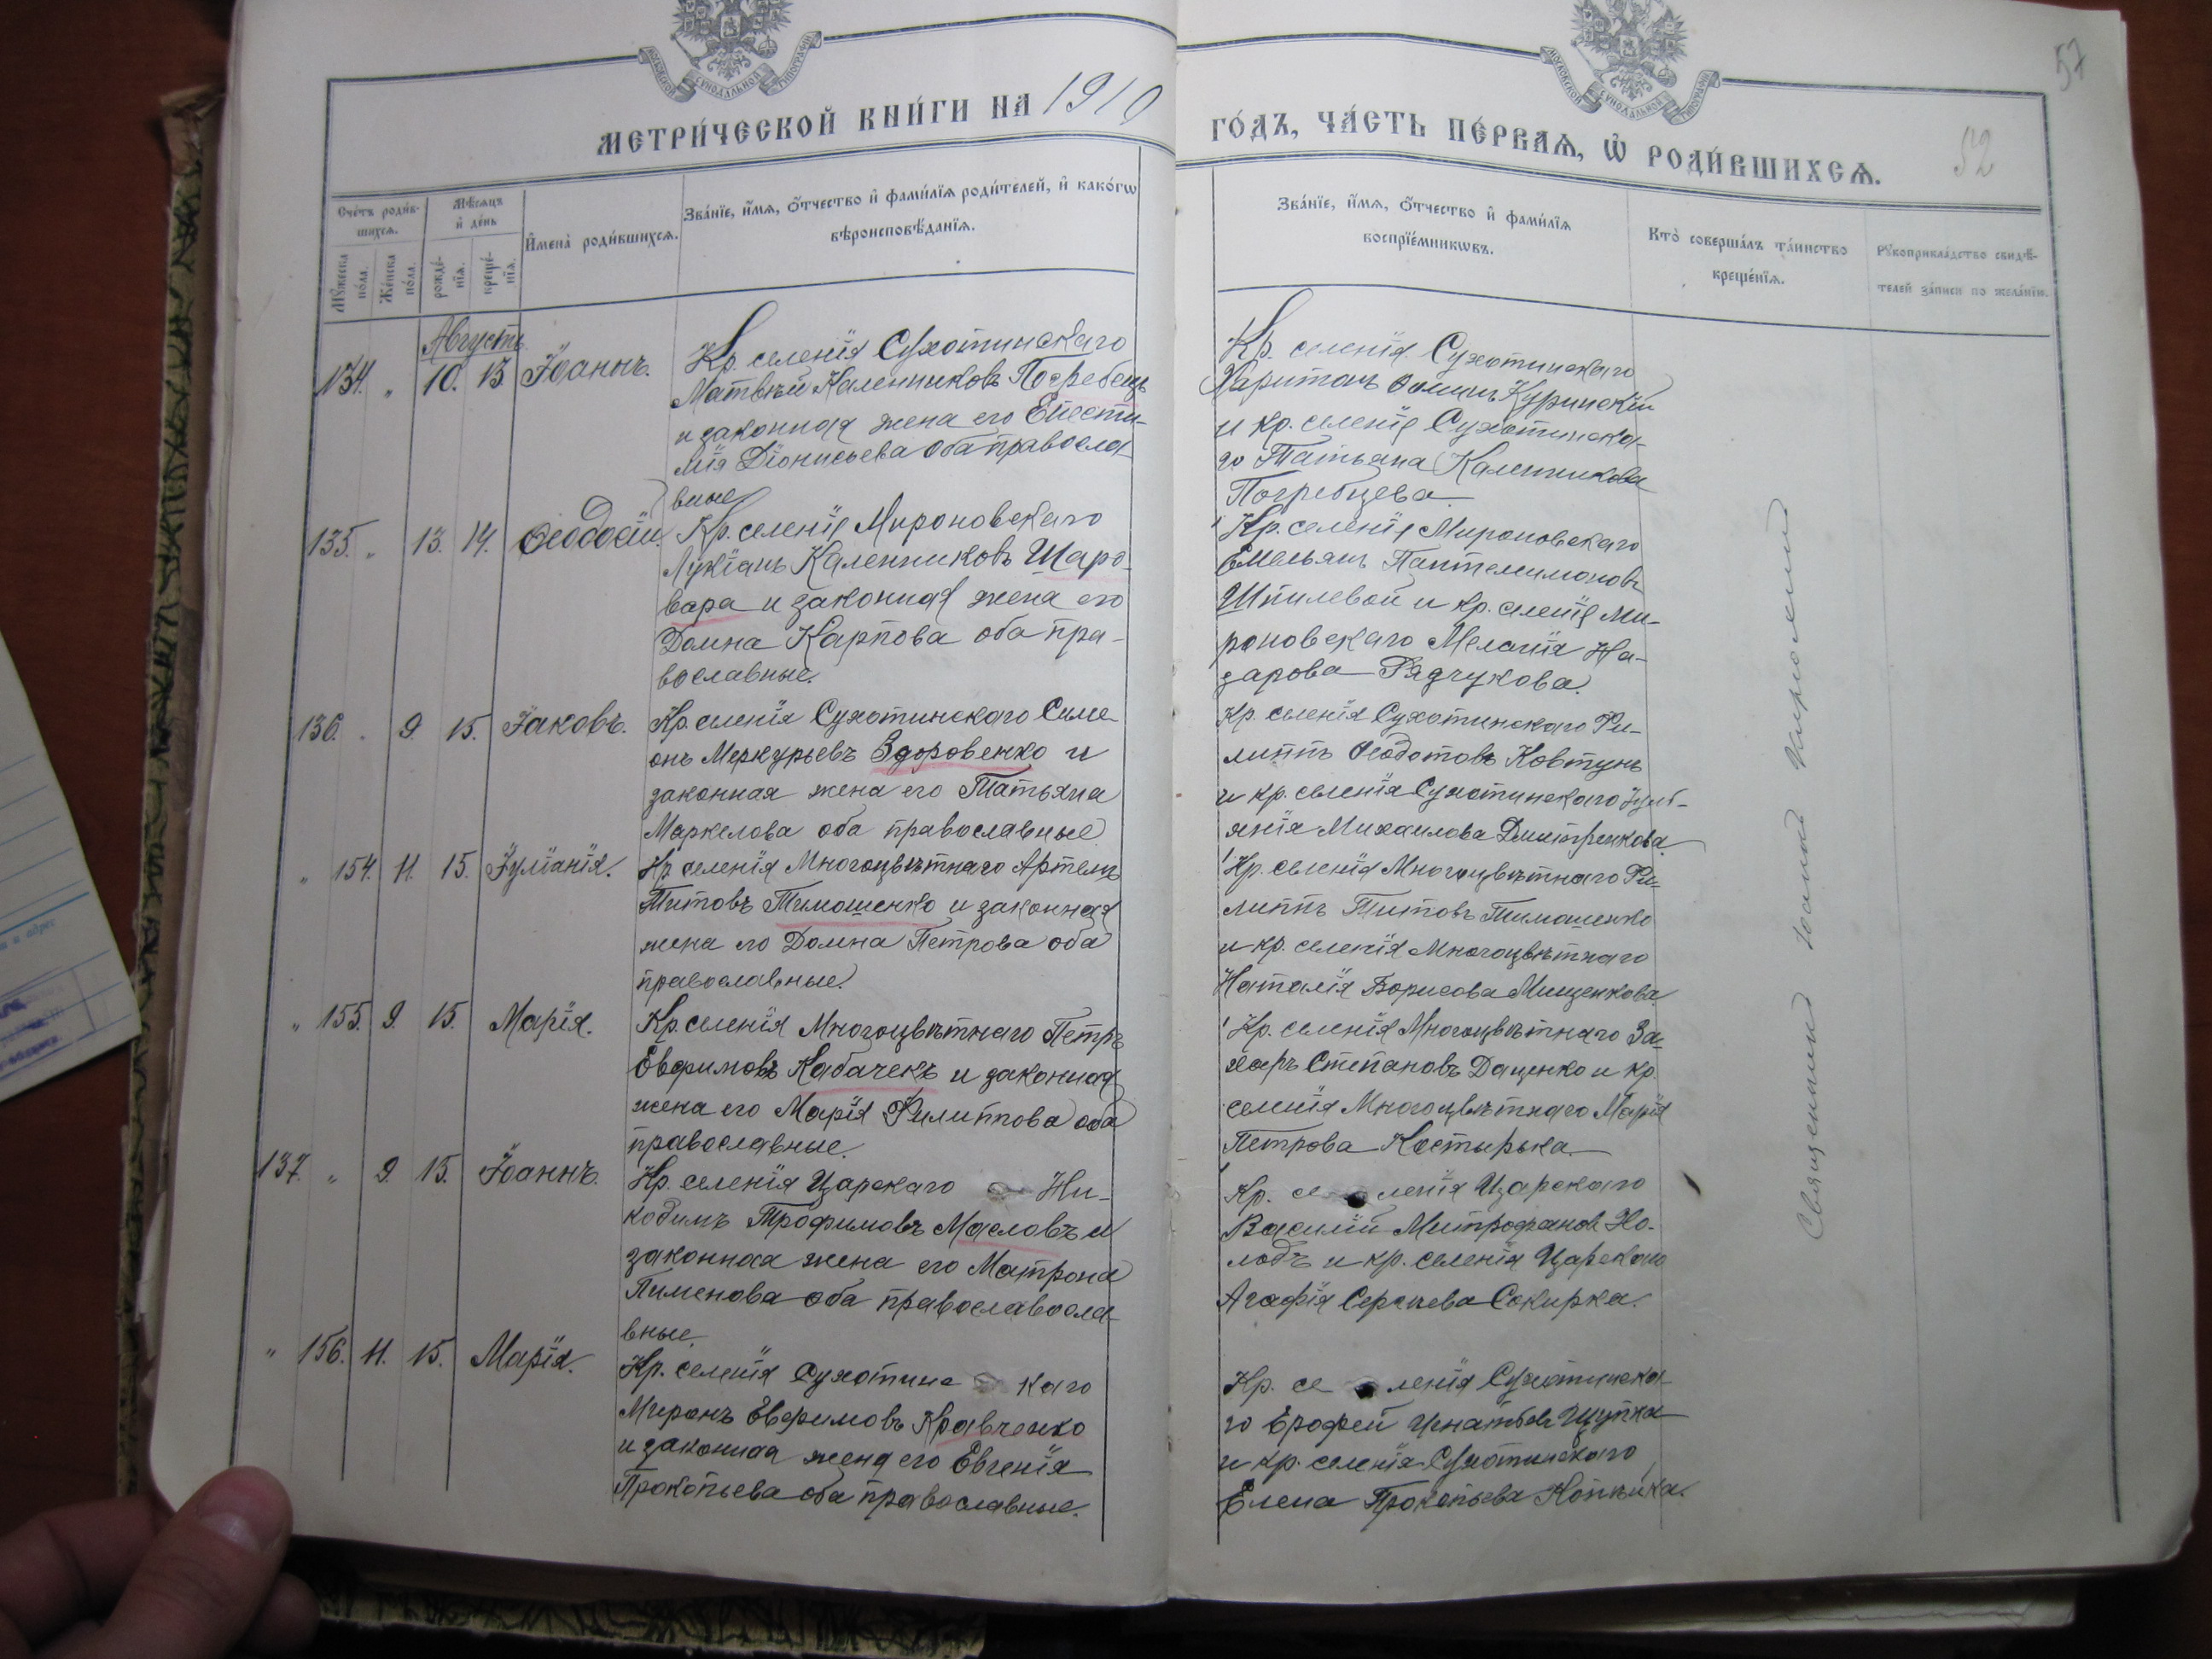 МОСКОВСКОЙ СУНОДАЛЬНОЙ ТИПОГРАФІИ
МОСКОВСКОЙ СУНОДАЛЬНОЙ ТИПОГРАФІИ
57
МЕТРИ́ЧЕСКОЙ КНИ́ГИ НА 1910
ГО́ДЪ, ЧА́СТЬ ПЕ́РВАѦ, Ѽ РОДИ́ВШИХСѦ.
52
Сче́тъ роди́в-
шихсѧ.
Мѣ́сѧцъ
и҆ де́нь
Мꙋ́жеска
по́ла.
Же́нска
по́ла.
рожде́-
нїѧ.
креще́-
нїѧ.
И҆мена̀ роди́вшихсѧ.
Зва́нїе, и҆́мѧ, ѻ҆́тчество и҆ фами́лїѧ роди́телей, и҆ како́гѡ
вѣроисповѣ́данїѧ.
Зва́нїе, и҆́мѧ, ѻ҆́тчество и҆ фами́лїѧ
воспрїе́мникѡвъ.
Кто̀ соверша́лъ та́инство
креще́нїѧ.
Рꙋкоприкла́дство свидѣ́-
телей за́писи по жела́нїю.
Августъ
134. " 10. 13 Іоаннъ.
Кр. селенія Сухотинскаго
Матвѣй Каленниковъ Погребецъ
и законная жена его Епести-
мія Діонисьева оба правосла-
вные
Кр. селенія Сухотинскаго
Харитонъ Ѳоминъ Куринскій
и кр. селенія Сухотинска-
го Татьяна Каленникова
Погребцева
135. " 13. 14. Ѳеодосій.
Кр. селенія Мироновскаго
Лукіанъ Каленниковъ Шаро-
вара и законная жена его
Домна Карпова оба пра-
вославные.
Кр. селенія Мироновскаго
Емельянъ Пантелимоновъ
Шпилевой и кр. селенія Ми-
роновскаго Меланія На-
зарова Рядчукова.
136. " 9. 15. Іаковъ.
Кр. селенія Сухотинскаго Симе
онъ Меркурьевъ Здоровенко и
законная жена его Татьяна
Маркелова оба православные
Кр. селенія Сухотинскаго Фи-
липпъ Ѳеодотовъ Ковтунъ
и кр. селенія Сухотинскаго
Михаилова Дмитренкова.
" 154. 11. 15. Іуліанія.
Кр селенія Многоцвѣтнаго Артемъ
Титовъ Тимошенко и законная
жена его Домна Петрова оба
православные.
Кр. селенія Многоцвѣтнаго Фи-
липпъ Титовъ Тимошенко
и кр. селенія Многоцвѣтнаго
Наталія Борисова Мищенкова
" 155. 9. 15. Марія.
Кр. селенія Многоцвѣтнаго Петръ
Евфимовъ Кабачекъ и законная
жена его Марія Филиппова оба
православные.
Кр. селенія Многоцвѣтнаго За-
харъ Степановъ Даценко и кр.
селенія Многоцвѣтнаго Марія
Петрова Костырька.
137. " 9. 15. Іоаннъ.
Кр. селенія Царскаго Ни-
кодимъ Трофимовъ Масловъ и
законная жена его Матрона
Пименова оба православосла-
вные.
Кр. се ленія Царскаго
Василій Митрофановъ Хо-
лодъ и кр. селенія Царскаго
Агафія Сергиева Сокирка.
" 156. 11. 15. Марія.
Кр. селенія Сухотинс каго
Миронъ Евфимовъ Кравченко
и законная жена его Евгенія
Прокопьева оба православные.
Кр. се ленія Сухотинска-
го Ерофей Игнатьевъ Щупка
и кр. селенія Сухотинскаго
Елена Прокопьева Копѣйка.
Священникъ Іоаннъ